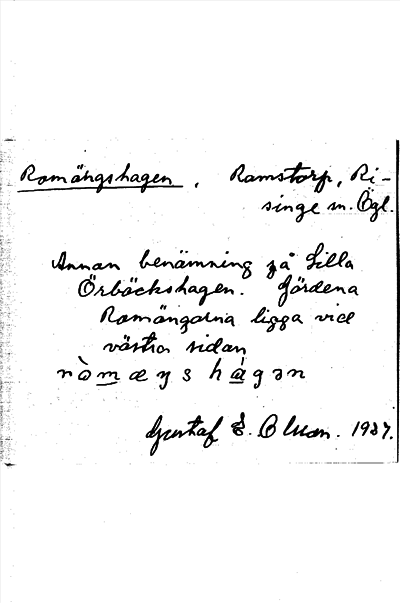 Romängshagen, Ramstorp, Ri-
singe sn. Ögl.
Annan benämning på Lilla
Örbäckshagen. Gärdena
Romängarna ligga vid
västra sidan
ròmæŋs hágən
Gustaf E. 1937.